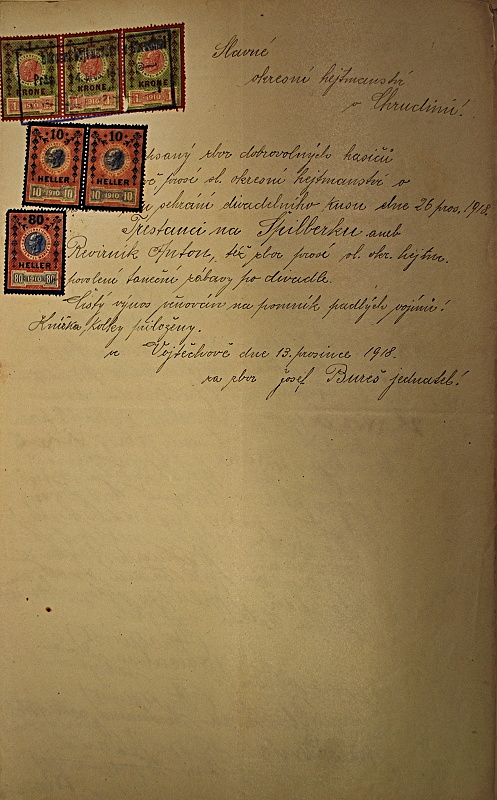 Slavné
okresní hejtmanství
v Chrudimi!
psaný sbor dobrovolných hasičů
prosí sl. okresní hejtmanství o
sehrání divadelního kusu dne 26 pros. 1918.
Trestanci na Špilberku aneb
Revírník Anton, též sbor prosí sl. okr. hejtm.
povolení taneční zábavy po divadle.
Čistý výnos věnován na pomník padlých vojínů!
Knížka, kolky přiloženy.
ve Vojtěchově dne 13. prosince 1918.
za sbor Josef Bureš jednatel!
KRONE KRONE KRONE
1 1910 1 1910 1 1910
10 10
HELLER HELLER
10 1910 10 10 1910 10
80
HELLER
80 1910 80